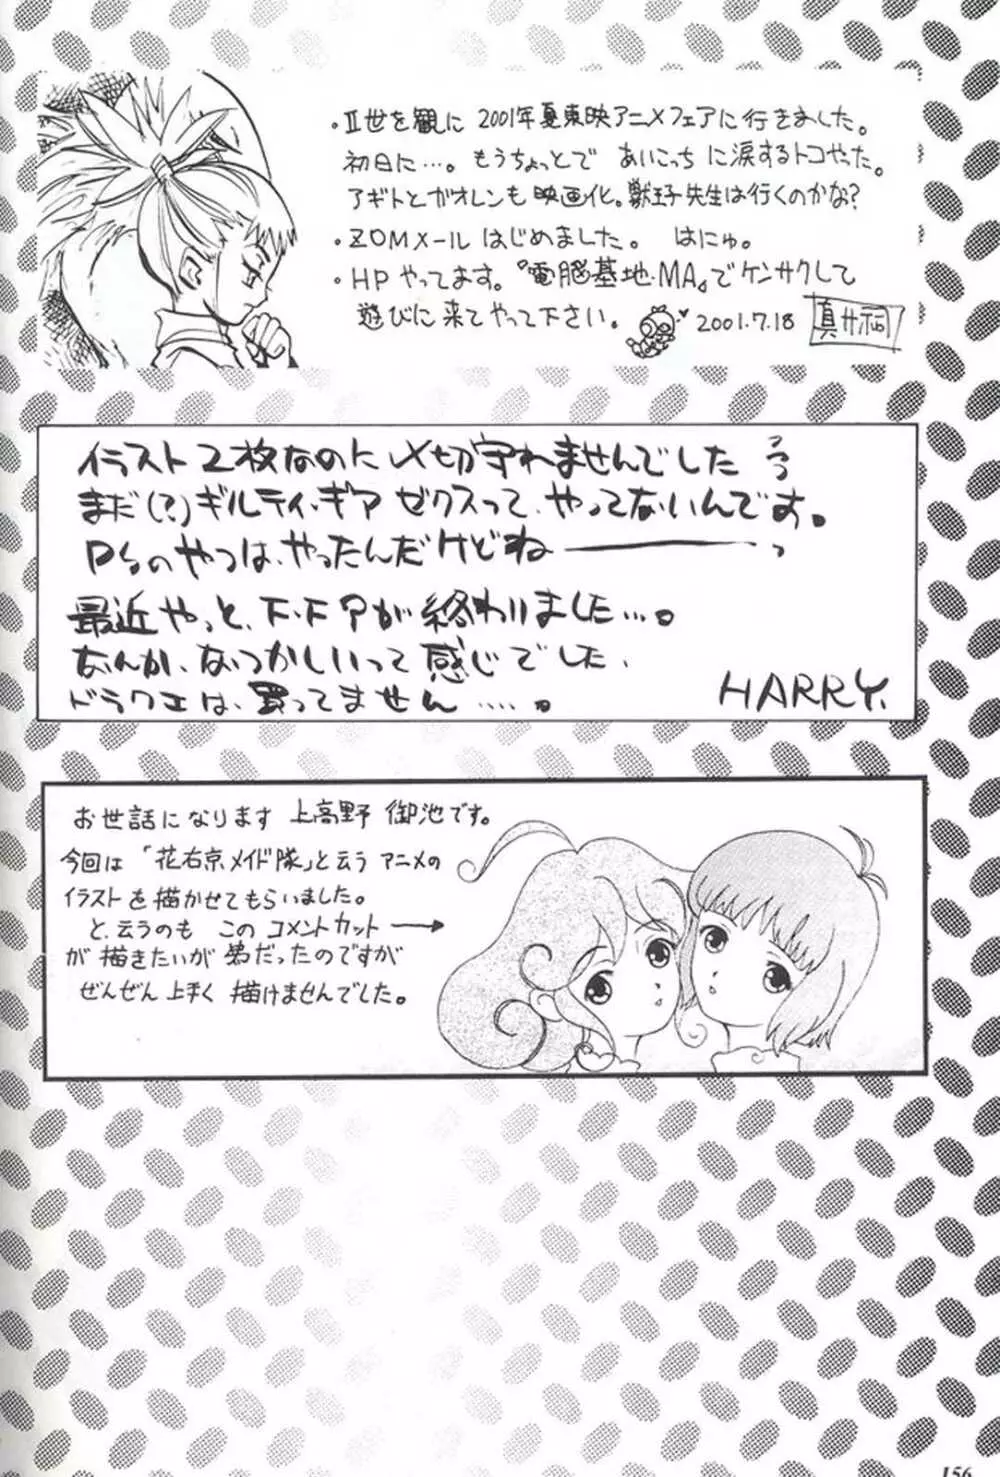 ・Ⅱ世を観に 2001年夏東映アニメフェアに行きました。
初日に…。もうちょっとで あいこっち に涙するトコやった。
アギトとガオレンも映画化。獣王子先生は行くのかな?
・ZOMメール はじめました。 はにゅ。
・HPやってます。『電脳基地・MA』でケンサクして
遊びに来てやって下さい。 2001.7.18
イラスト2枚なのに〆切守れませんでした
まだ(?)ギルティ・ギア ゼクスって、やってないんです。
PSのやつは、やったんだけどね———っ
最近やっと、F.F.9が終わりました…。
なんか、なつかしいって感じでした、
ドラクエは、買ってません……。
HARRY.
お世話になります 上高野 御池です。
今回は「花右京メイド隊」と云う アニメの
イラストを描かせてもらいました。
と、云うのも この コメントカット→
が描きたいが為だったのですが
ぜんぜん上手く 描けませんでした。
156